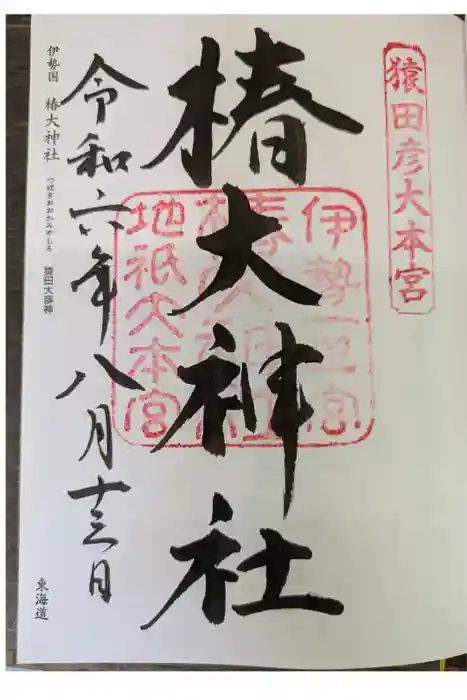 猿田彦大本宮
椿大神社
伊勢一之宮
地祇大本宮
令和六年八月十三日
伊勢国 椿大神社 つばきおおかみやしろ 猿田大彦神
東海道